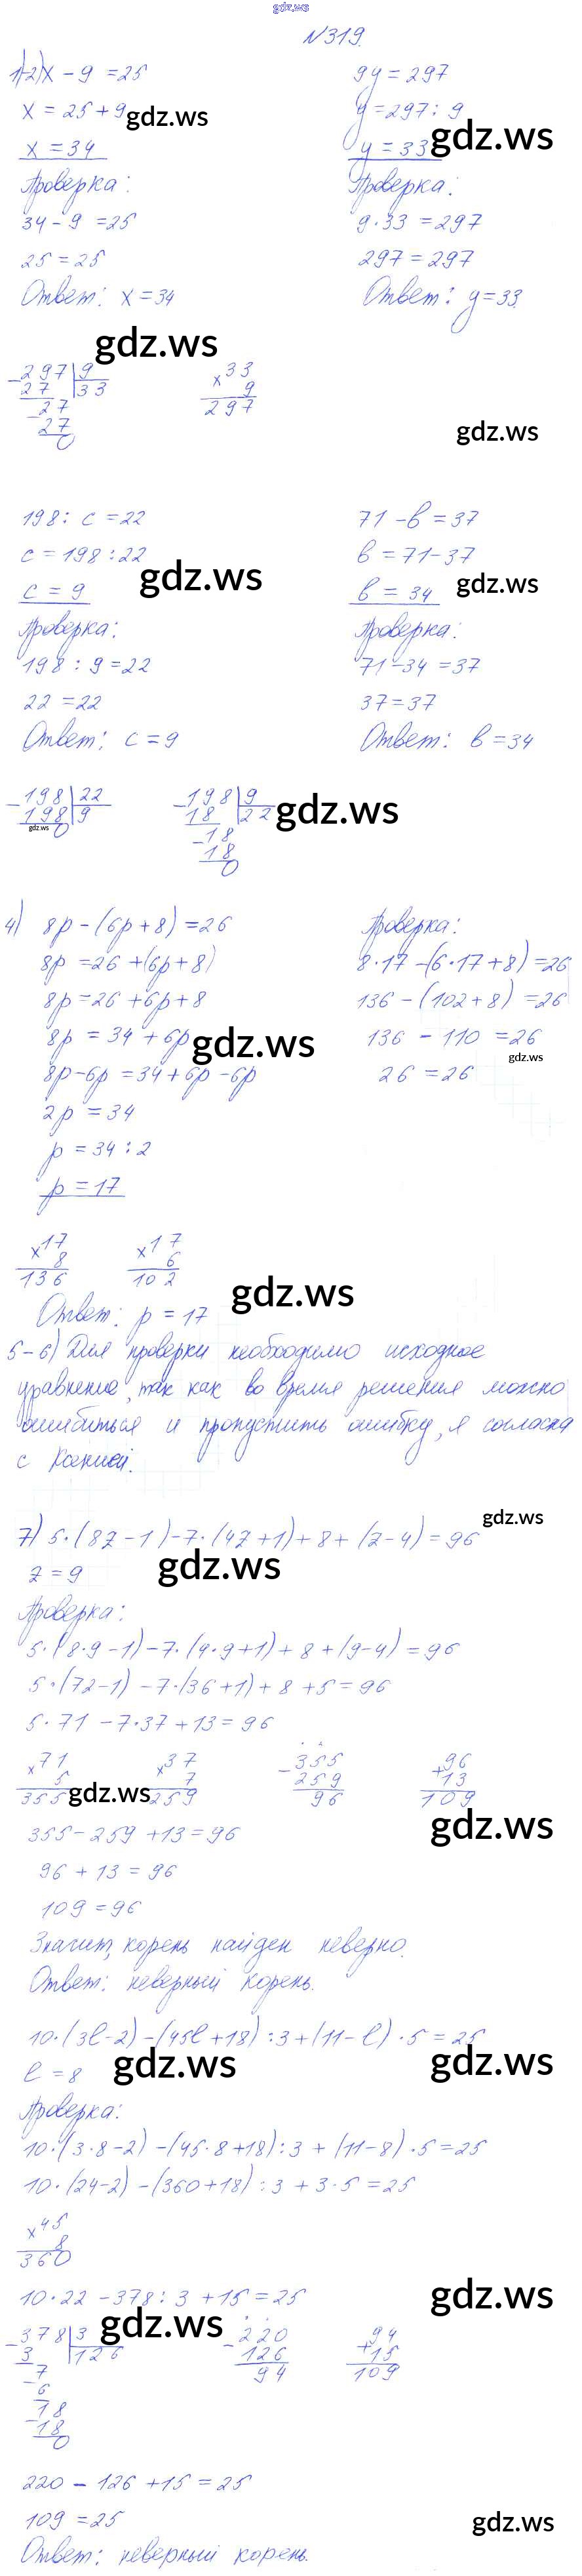 gdz.ws
№319.
1)-2) x - 9 = 25
x = 25 + 9
x = 34
Проверка:
34 - 9 = 25
25 = 25
Ответ: x = 34
9y = 297
y = 297 : 9
y = 33
Проверка:
9·33 = 297
297 = 297
Ответ: y = 33.
gdz.ws
gdz.ws
gdz.ws
-297|9
27 33
-27
27
0
x33
9
297
gdz.ws
198 : c = 22
c = 198 : 22
c = 9
Проверка:
198 : 9 = 22
22 = 22
Ответ: c = 9
71 - в = 37
в = 71 - 37
в = 34
Проверка:
71 - 34 = 37
37 = 37
Ответ: в = 34
gdz.ws
gdz.ws
-198|22
198 9
0
gdz.ws
-198|9
18 22
-18
18
0
gdz.ws
4) 8p - (6p + 8) = 26
8p = 26 + (6p + 8)
8p = 26 + 6p + 8
8p = 34 + 6p
8p - 6p = 34 + 6p - 6p
2p = 34
p = 34 : 2
p = 17
Проверка:
8·17 - (6·17 + 8) = 26
136 - (102 + 8) = 26
136 - 110 = 26
26 = 26
gdz.ws
gdz.ws
x17
8
136
x17
6
102
gdz.ws
Ответ: p = 17
5-6) Для проверки необходимо исходное
уравнение, так как во время решения можно
ошибиться и пропустить ошибку, я согласна
с Ксенией.
gdz.ws
7) 5·(8z - 1) - 7·(4z + 1) + 8 + (z - 4) = 96
gdz.ws
z = 9
Проверка:
5·(8·9 - 1) - 7·(4·9 + 1) + 8 + (9 - 4) = 96
5·(72 - 1) - 7·(36 + 1) + 8 + 5 = 96
5·71 - 7·37 + 13 = 96
x71
5
355
x37
7
259
-355
259
96
+96
13
109
gdz.ws
gdz.ws
355 - 259 + 13 = 96
96 + 13 = 96
109 = 96
Значит, корень найден неверно.
Ответ: неверный корень.
10·(3l - 2) - (45l + 18) : 3 + (11 - l)·5 = 25
gdz.ws
gdz.ws
l = 8
Проверка:
10·(3·8 - 2) - (45·8 + 18) : 3 + (11 - 8)·5 = 25
10·(24 - 2) - (360 + 18) : 3 + 3·5 = 25
x45
8
360
gdz.ws
10·22 - 378 : 3 + 15 = 25
gdz.ws
-378|3
3 126
-7
6
-18
18
0
-220
126
94
+94
15
109
220 - 126 + 15 = 25
109 = 25
gdz.ws
Ответ: неверный корень.